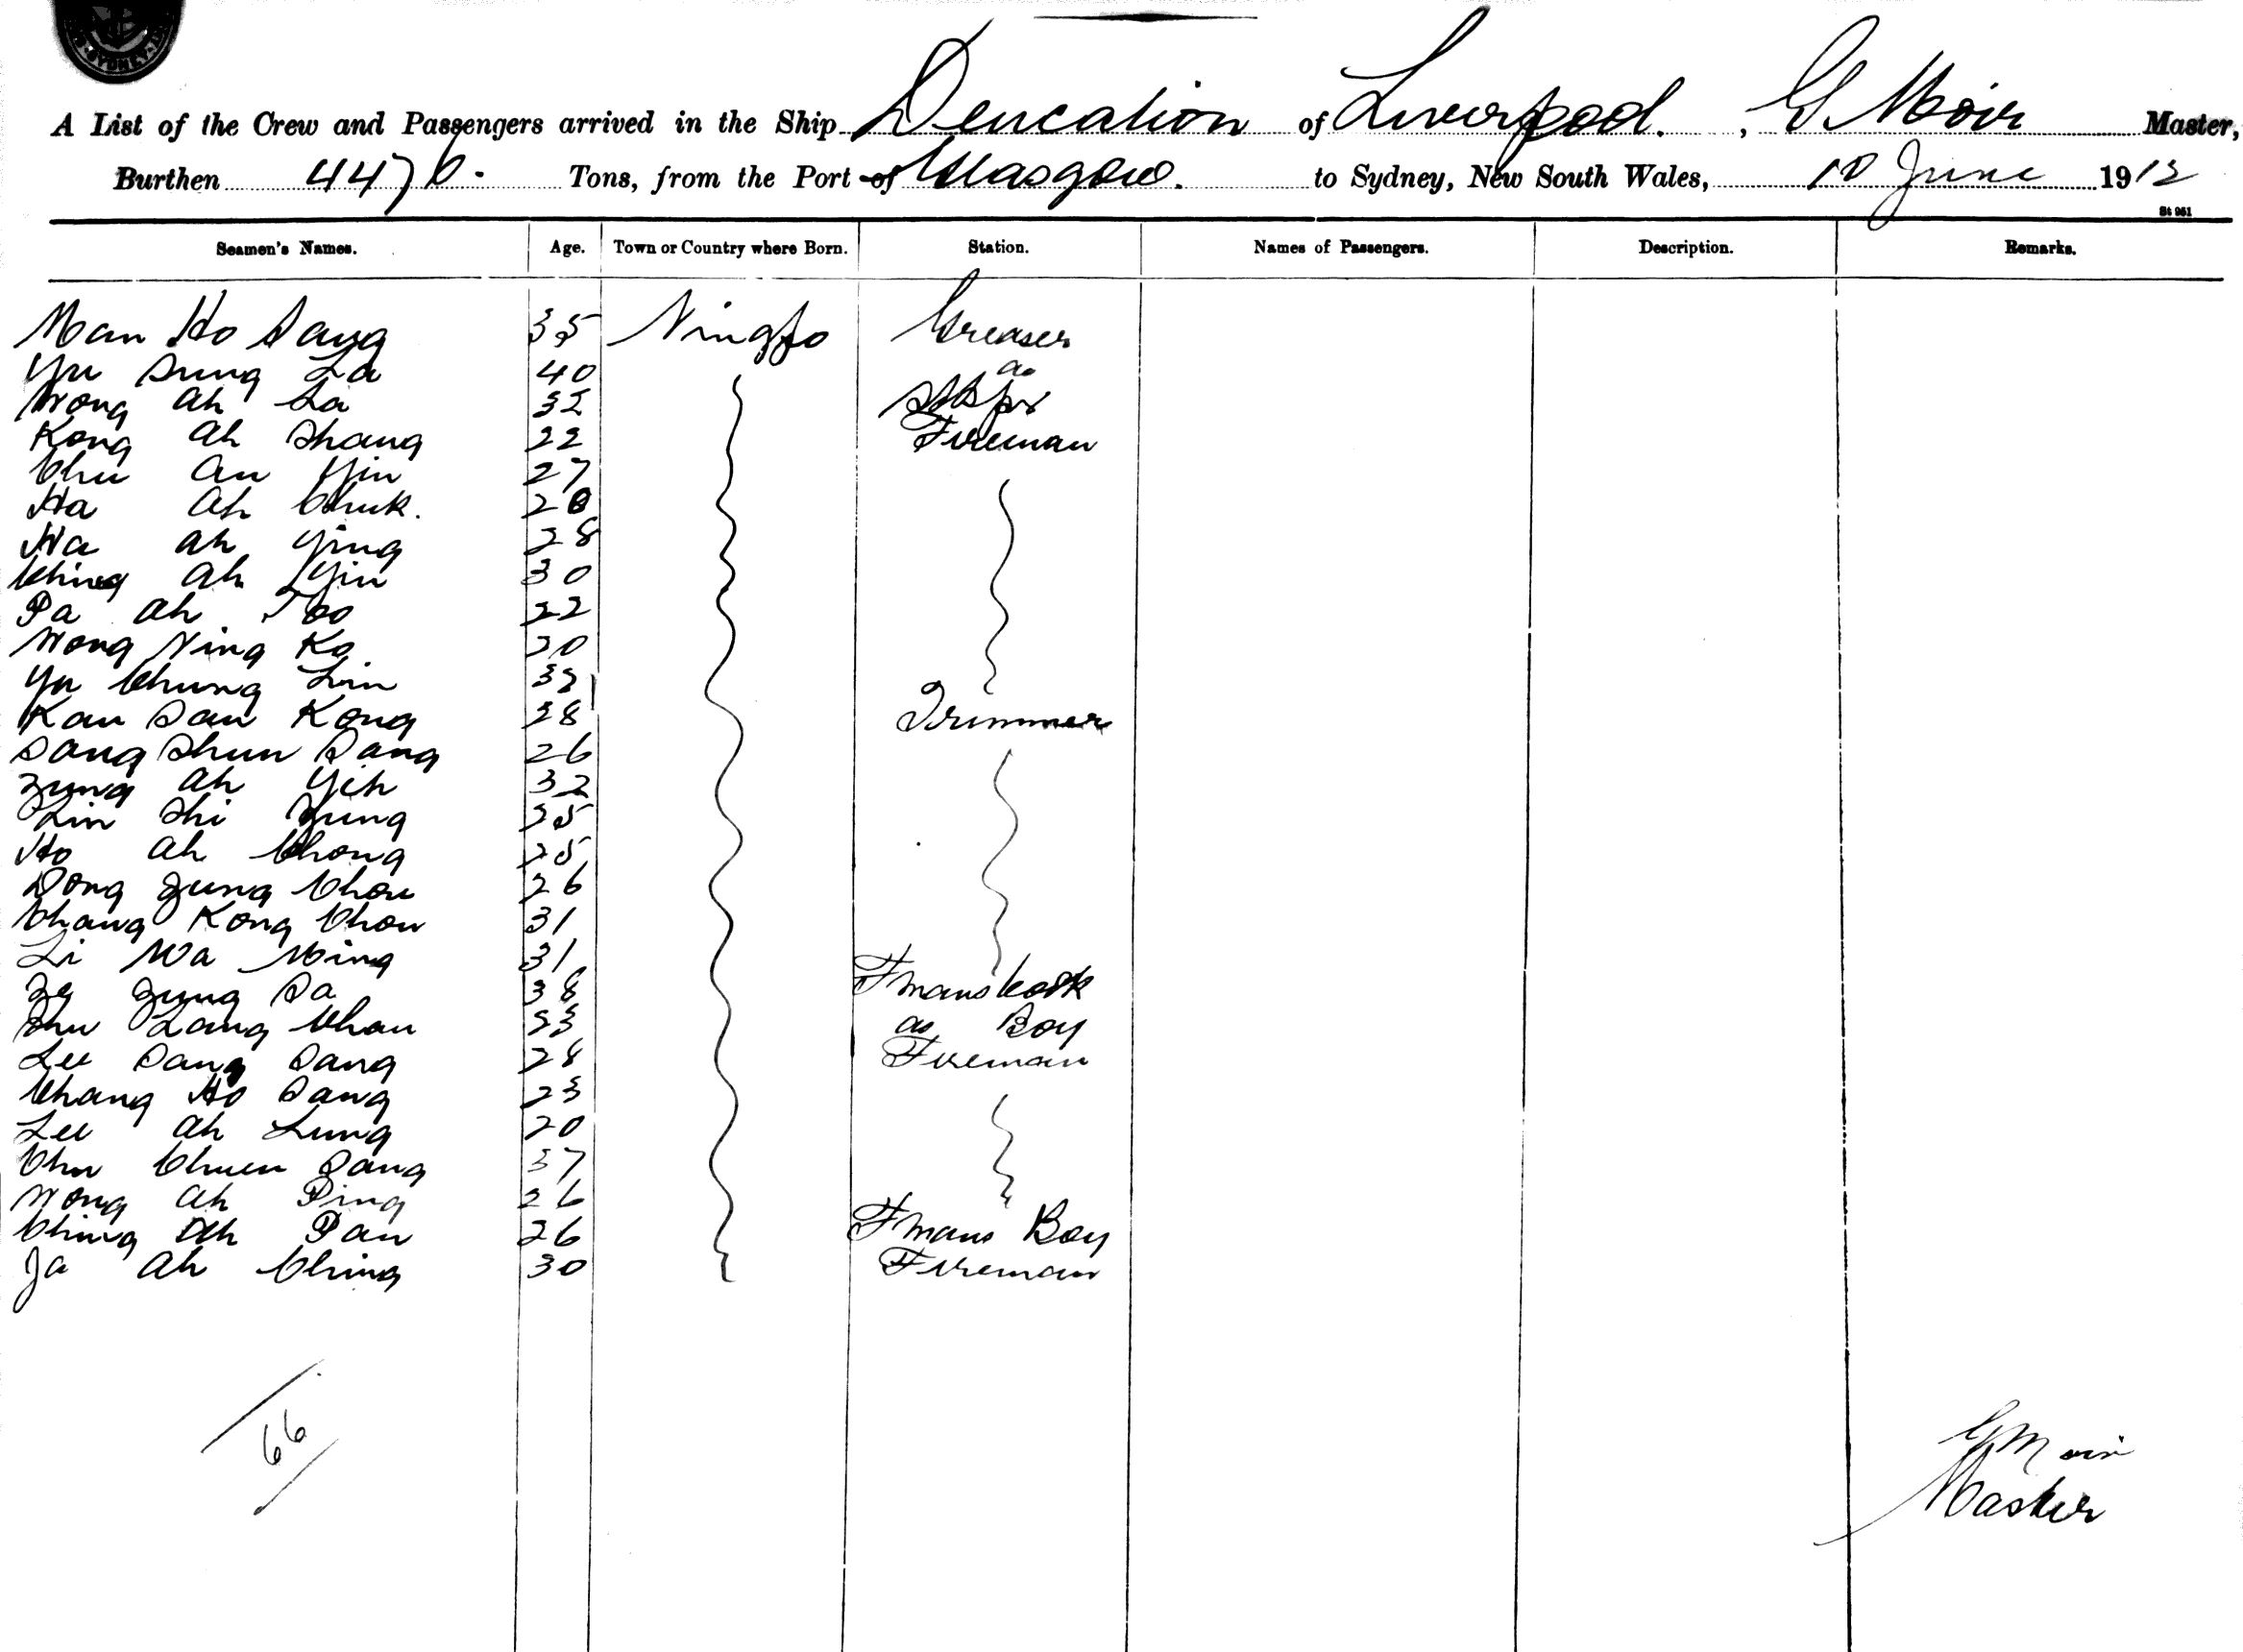 SYDNEY
A List of the Crew and Passengers arrived in the Ship Deucalion of Liverpool. , G Moir Master,
Burthen 4476. Tons, from the Port of Glasgow. to Sydney, New South Wales, 10 June 1912
St 961
Seamen's Names. Age. Town or Country where Born. Station. Names of Passengers. Description. Remarks.
Man Ho Sang 35 Ningpo Greaser
Yu Sung La 40 as
Wong Ah La 32
Kong Ah Shang 22 Fireman
Chu An Yin 27
Ha Ah Chuk. 20
Wa Ah Ying 28
Ching Ah Yin 30
Pa Ah Foo 22
Wong Ning Ko 20
Yu Chung Lin 32
Kan San Kong 28 Trimmer
Sang Shun Sang 26
Zung Ah Yih 32
Lin Shi Yung 25
Ho Ah Chong 25
Dong Zung Chou 26
Chang Kong Chou 31
Li Wa Ming 31
Ze Zung Sa 38 Fmans Cook
Shu Lang Chau 23 as Boy
Lee Sang Sang 28 Fireman
Chang Ho Sang 23
Lee Ah Lung 20
Chu Chuen Sang 37
Wong Ah Ping 26
Ching Ah Pau 26 Fmans Boy
Ja Ah Ching 30 Fireman
66
G Moir
Master